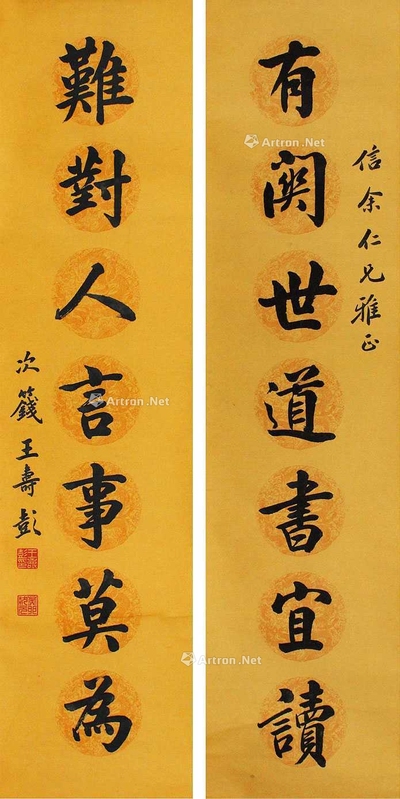 信余仁兄雅正
有関世道書宜讀
難對人言事莫為
次籛王壽彭
Artron.Net
Artron.Net
Artron.Net
Artron.Net